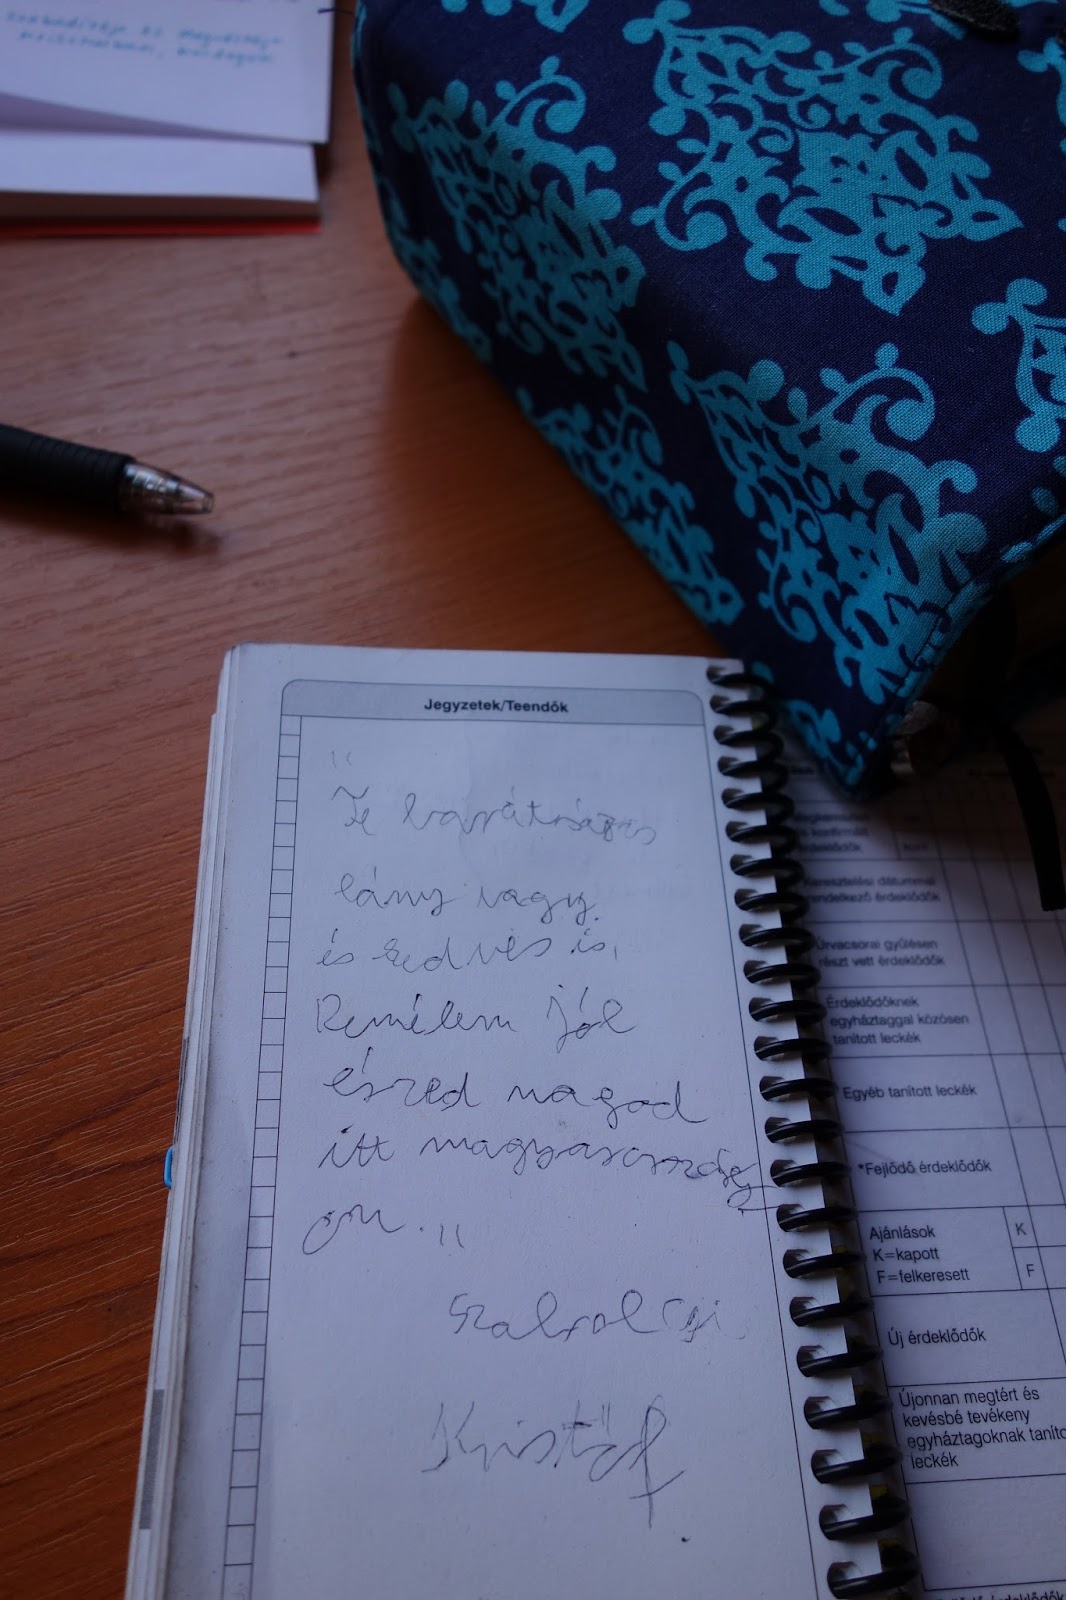 Jegyzetek/Teendők
"
Te barátságos
lány vagy.
és kedves is,
Remélem jól
érzed magad
itt magyarország
on. "
Szabolcsi
Kristóf
és konfirmált
érdeklődők
Keresztelési dátummal
rendelkező érdeklődők
Úrvacsorai gyűlésen
részt vett érdeklődők
Érdeklődőknek
egyháztaggal közösen
tanított leckék
Egyéb tanított leckék
*Fejlődő érdeklődők
Ajánlások K
K=kapott
F=felkeresett F
Új érdeklődők
Újonnan megtért és
kevésbé tevékeny
egyháztagoknak taníto
leckék